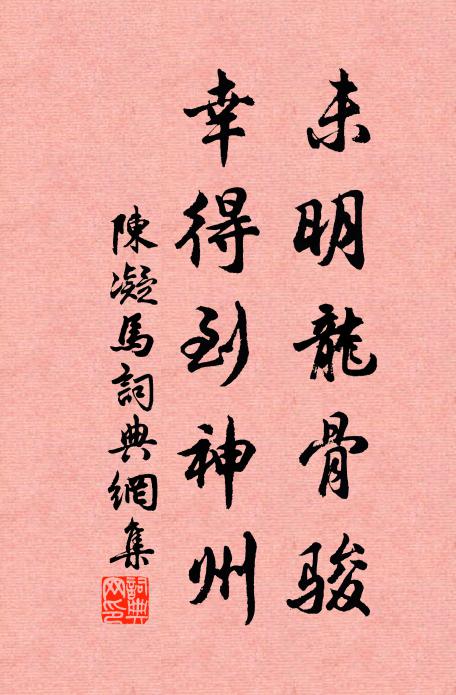 未明龍骨駿
幸得到神州
陳凝馬詞典網集
詞典网印